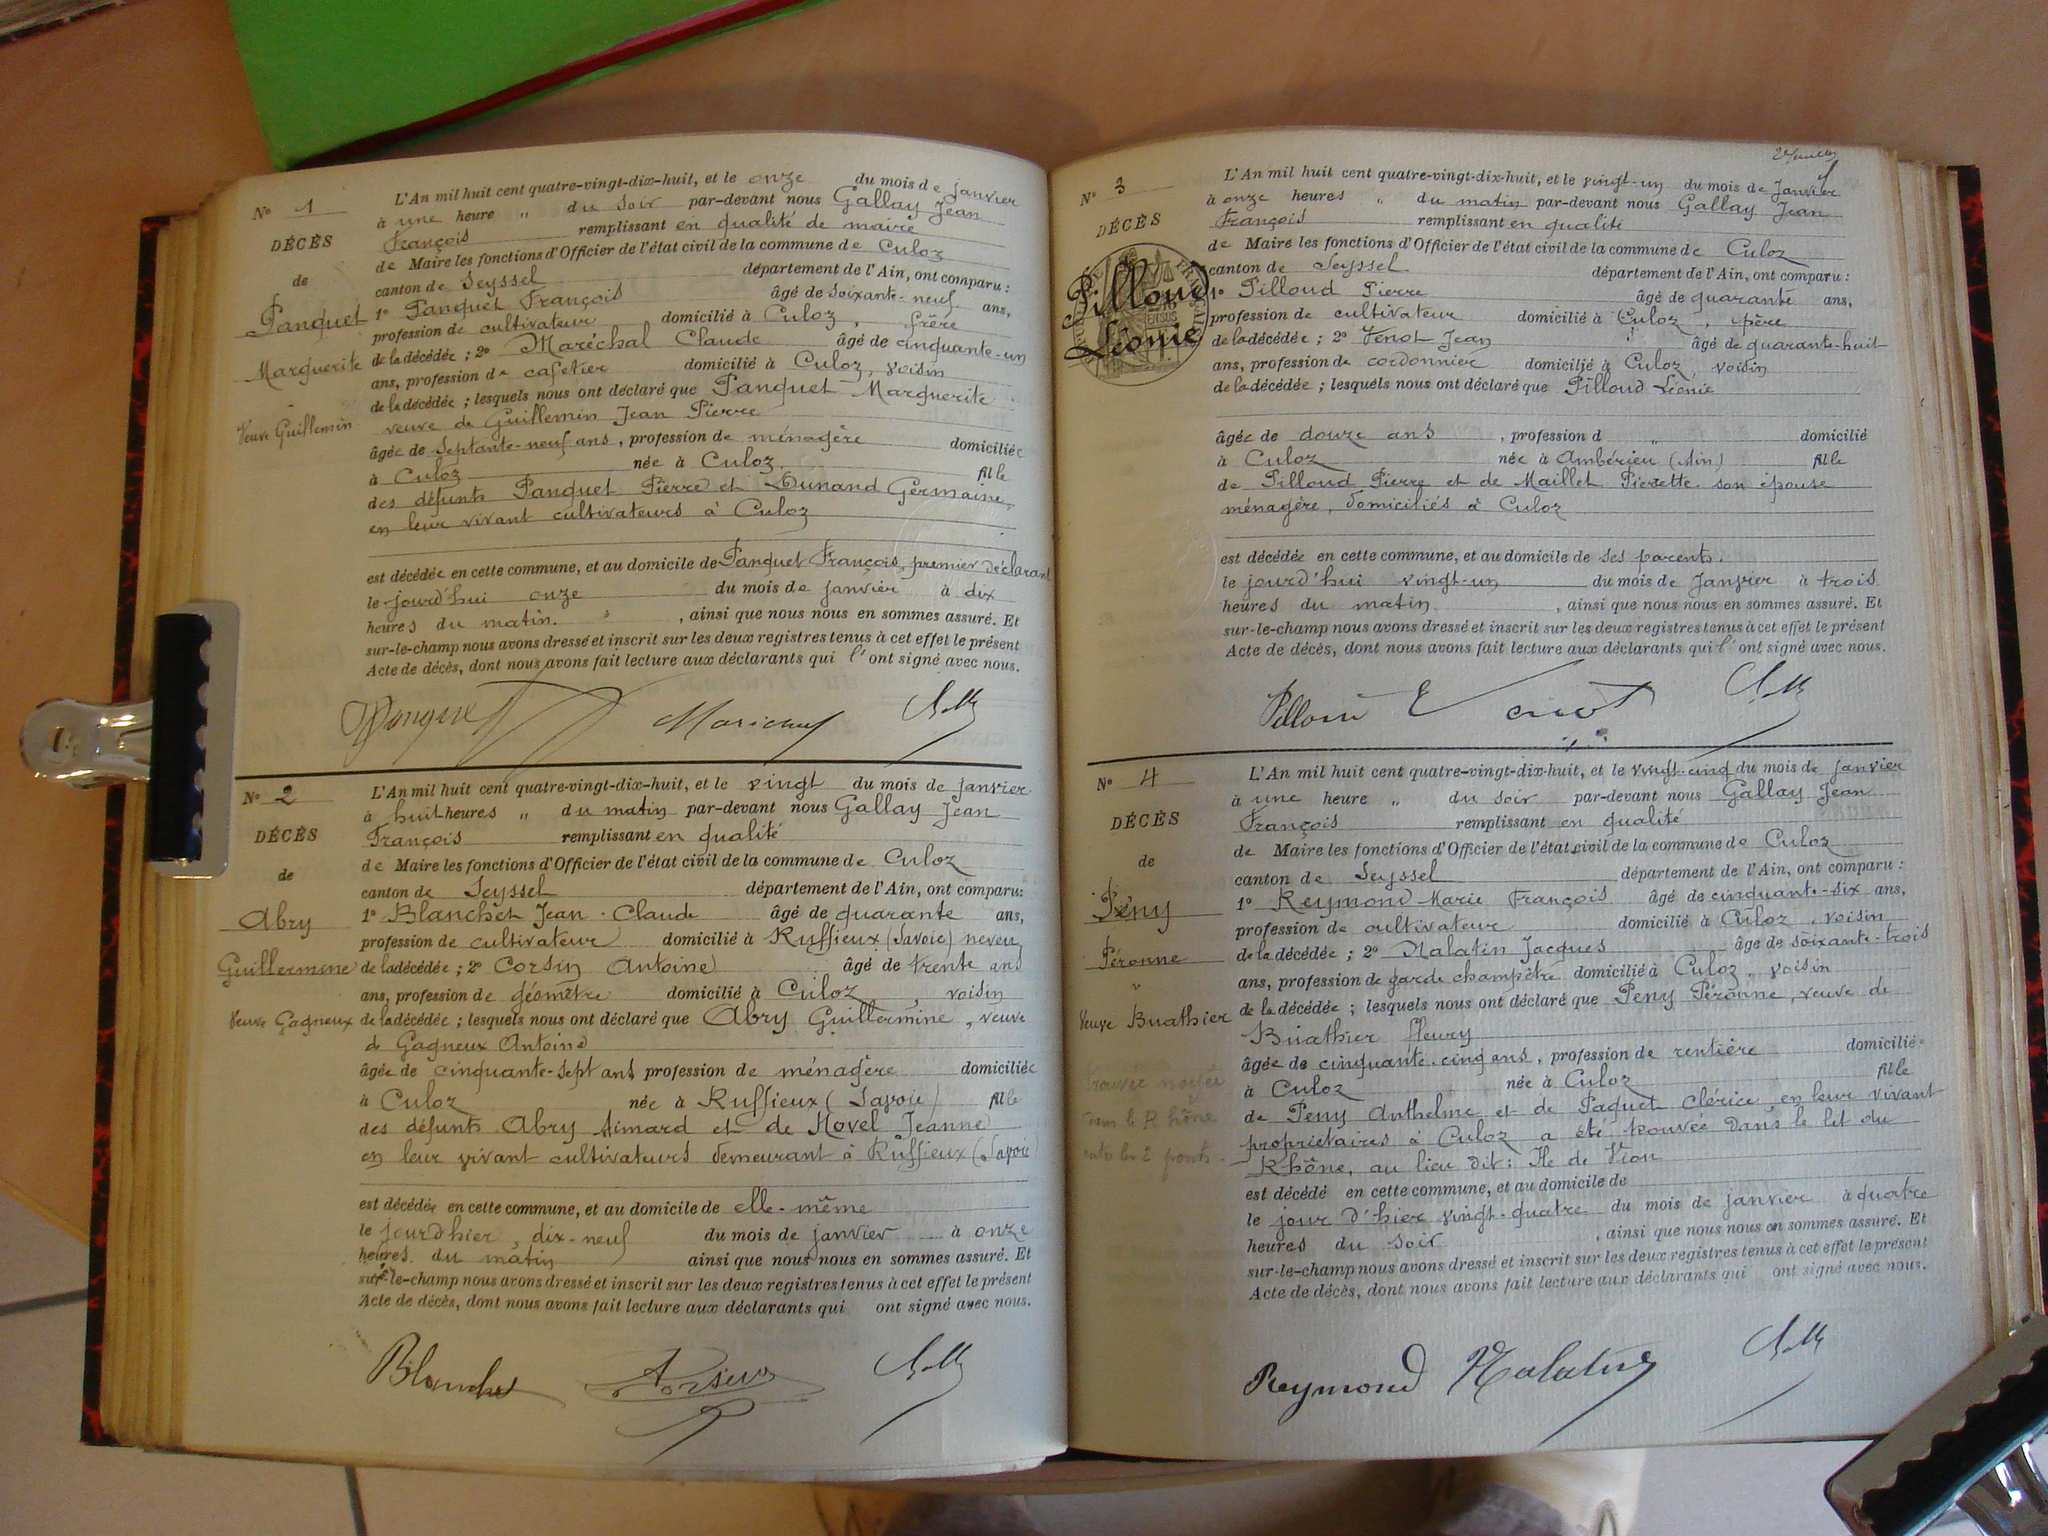 N° 1
DÉCÈS
de
Panquet
Marguerite
Veuve Guillemin
L'An mil huit cent quatre-vingt-dix-huit, et le onze du mois de janvier
à une heure „ du soir par-devant nous Gallay Jean
François remplissant en qualité de maire
de Maire les fonctions d'Officier de l'état civil de la commune de Culoz
canton de Seyssel département de l'Ain, ont comparu:
1° Panquet François âgé de soixante-neuf ans,
profession de cultivateur domicilié à Culoz, frère
de la décédée; 2° Maréchal Claude âgé de cinquante-un
ans, profession de cafetier domicilié à Culoz, voisin
de la décédée; lesquels nous ont déclaré que Panquet Marguerite
veuve de Guillemin Jean Pierre
âgée de Septante-neuf ans, profession de ménagère domiciliée
à Culoz née à Culoz fille
des défunts Panquet Pierre et Dunand Germaine,
en leur vivant cultivateurs à Culoz
est décédée en cette commune, et au domicile de Panquet François, premier déclarant
le jourd'hui onze du mois de janvier à dix
heures du matin. , ainsi que nous nous en sommes assuré. Et
sur-le-champ nous avons dressé et inscrit sur les deux registres tenus à cet effet le présent
Acte de décès, dont nous avons fait lecture aux déclarants qui l' ont signé avec nous.
N° 2
DÉCÈS
de
Abry
Guillermine
Veuve Gagneux
L'An mil huit cent quatre-vingt-dix-huit, et le vingt du mois de janvier
à huit heures „ du matin par-devant nous Gallay Jean
François remplissant en qualité
de Maire les fonctions d'Officier de l'état civil de la commune de Culoz
canton de Seyssel département de l'Ain, ont comparu:
1° Blanchet Jean-Claude âgé de quarante ans,
profession de cultivateur domicilié à Ruffieux (Savoie) neveu
de la décédée; 2° Corsin Antoine âgé de trente ans
ans, profession de géomètre domicilié à Culoz, voisin
de la décédée; lesquels nous ont déclaré que Abry Guillermine, veuve
de Gagneux Antoine
âgée de cinquante-sept ans profession de ménagère domiciliée
à Culoz née à Ruffieux (Savoie) fille
des défunts Abry Aimard et de Hovel Jeanne
en leur vivant cultivateurs demeurant à Ruffieux (Savoie
est décédée en cette commune, et au domicile de elle-même
le jourd'hier, dix-neuf du mois de janvier à onze
heures du matin ainsi que nous nous en sommes assuré. Et
sur-le-champ nous avons dressé et inscrit sur les deux registres tenus à cet effet le présent
Acte de décès, dont nous avons fait lecture aux déclarants qui ont signé avec nous.
Blanchet
N° 3
DÉCÈS
Pilloud
Léonie
L'An mil huit cent quatre-vingt-dix-huit, et le vingt-un du mois de Janvier
à onze heures „ du matin par-devant nous Gallay Jean
François remplissant en qualité
de Maire les fonctions d'Officier de l'état civil de la commune de Culoz
canton de Seyssel département de l'Ain, ont comparu:
1° Pilloud Pierre âgé de quarante ans,
profession de cultivateur domicilié à Culoz, père
de la décédée; 2° Venot Jean âgé de quarante-huit
ans, profession de cordonnier domicilié à Culoz, voisin
de la décédée; lesquels nous ont déclaré que Pilloud Léonie
âgée de douze ans , profession d „ domicilié
à Culoz née à Ambérieu (Ain) fille
de Pilloud Pierre et de Maillet Pierrette son épouse
ménagère, domiciliés à Culoz
est décédée en cette commune, et au domicile de ses parents.
le jourd'hui vingt-un du mois de Janvier à trois
heures du matin , ainsi que nous nous en sommes assuré. Et
sur-le-champ nous avons dressé et inscrit sur les deux registres tenus à cet effet le présent
Acte de décès, dont nous avons fait lecture aux déclarants qui l' ont signé avec nous.
N° 4
DÉCÈS
de
Peny
Péronne
Veuve Buathier
L'An mil huit cent quatre-vingt-dix-huit, et le vingt-cinq du mois de janvier
à une heure „ du soir par-devant nous Gallay Jean
François remplissant en qualité
de Maire les fonctions d'Officier de l'état civil de la commune de Culoz
canton de Seyssel département de l'Ain, ont comparu:
1° Reymond Marie François âgé de cinquante-six ans,
profession de cultivateur domicilié à Culoz, voisin
de la décédée; 2° Nalatin Jacques âgé de soixante-trois
ans, profession de garde champêtre domicilié à Culoz, voisin
de la décédée; lesquels nous ont déclaré que Peny Péronne, veuve de
Buathier fleury
âgée de cinquante-cinq ans, profession de rentière domiciliée
à Culoz née à Culoz fille
de Peny Anthelme et de Paquet Clérice, en leur vivant
propriétaires à Culoz a été trouvée dans le lit du
Rhône, au lieu dit: Ile de Vion
est décédé en cette commune, et au domicile de
le jour d'hier vingt-quatre du mois de janvier à quatre
heures du soir , ainsi que nous nous en sommes assuré. Et
sur-le-champ nous avons dressé et inscrit sur les deux registres tenus à cet effet le présent
Acte de décès, dont nous avons fait lecture aux déclarants qui ont signé avec nous.
trouvée noyée
dans le Rhône
Reymond Nalatin